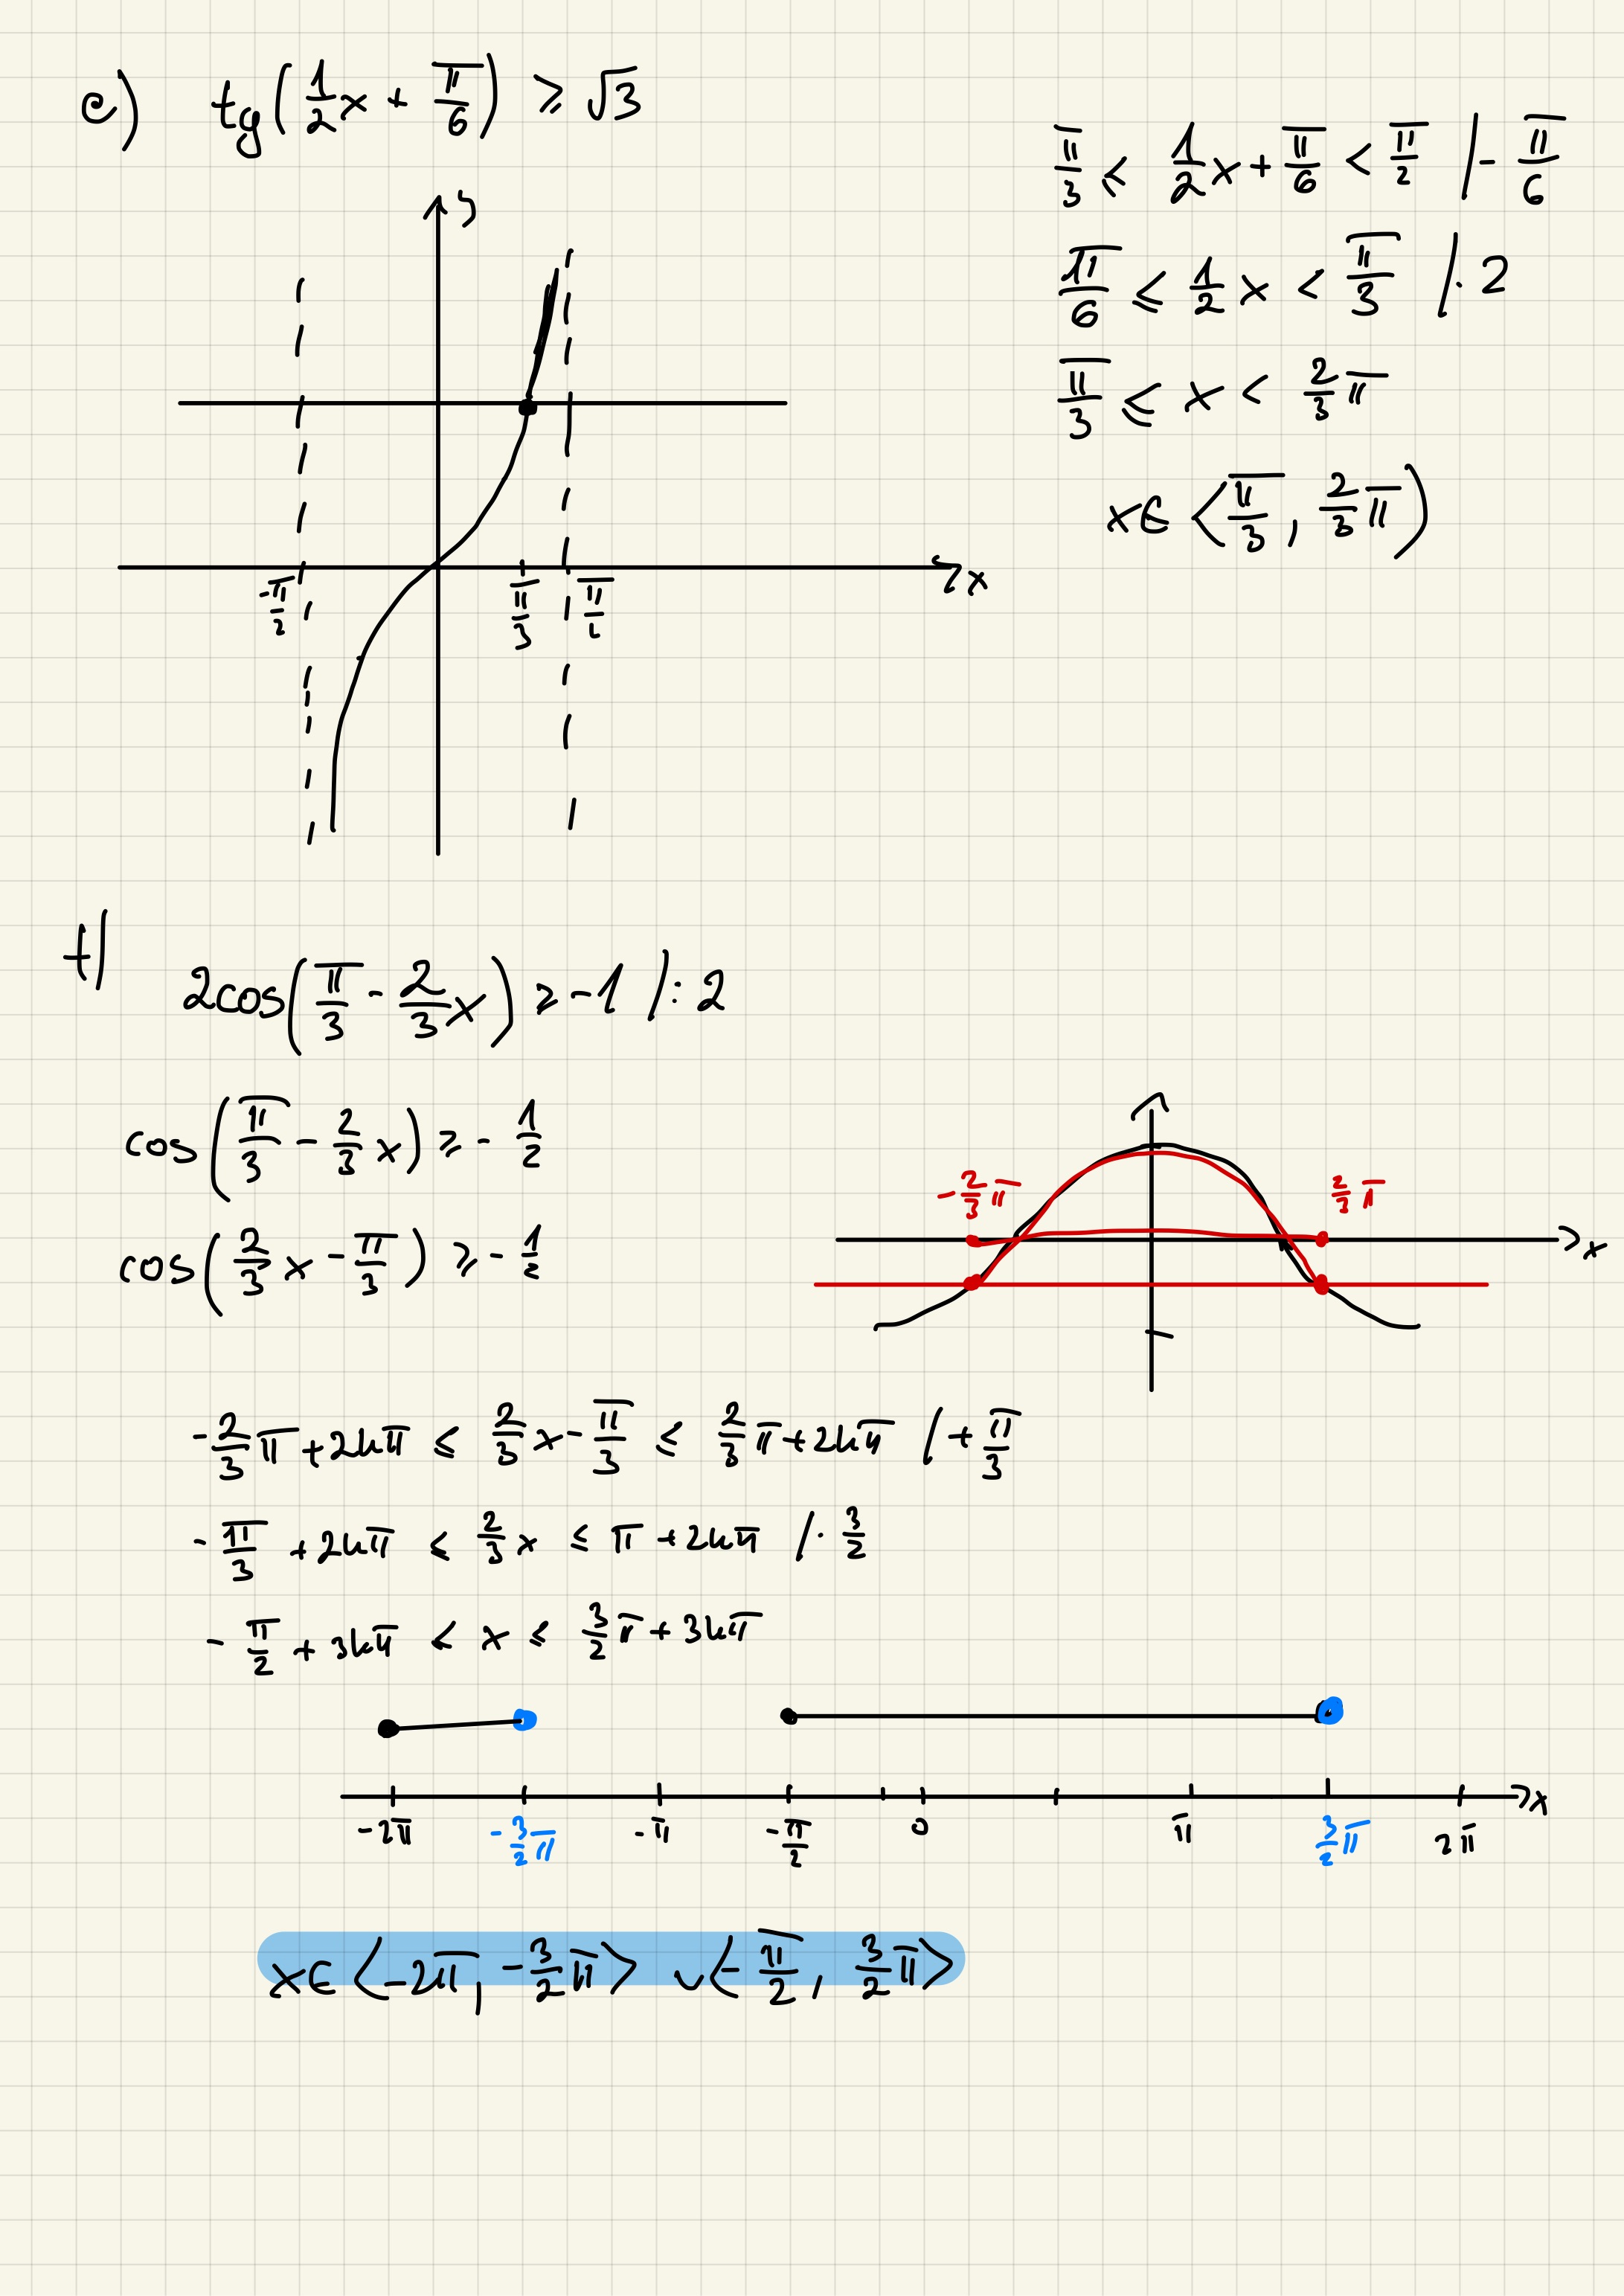 e) tg(1/2 x + π/6) ≥ √3
π/3 ≤ 1/2 x + π/6 < π/2 /- π/6
π/6 ≤ 1/2 x < π/3 /· 2
π/3 ≤ x < 2/3 π
x∈ <π/3, 2/3 π)
y
x
-π/2
π/3
π/2
f)
2cos(π/3 - 2/3 x) ≥ -1 /: 2
cos(π/3 - 2/3 x) ≥ - 1/2
cos(2/3 x - π/3) ≥ - 1/2
-2/3 π
2/3 π
x
-2/3 π + 2kπ ≤ 2/3 x - π/3 ≤ 2/3 π + 2kπ /+ π/3
-π/3 + 2kπ ≤ 2/3 x ≤ π + 2kπ /· 3/2
-π/2 + 3kπ ≤ x ≤ 3/2 π + 3kπ
x
-2π -3/2 π -π -π/2 0 π 3/2 π 2π
x∈ <-2π, -3/2 π> ∪ <-π/2, 3/2 π>